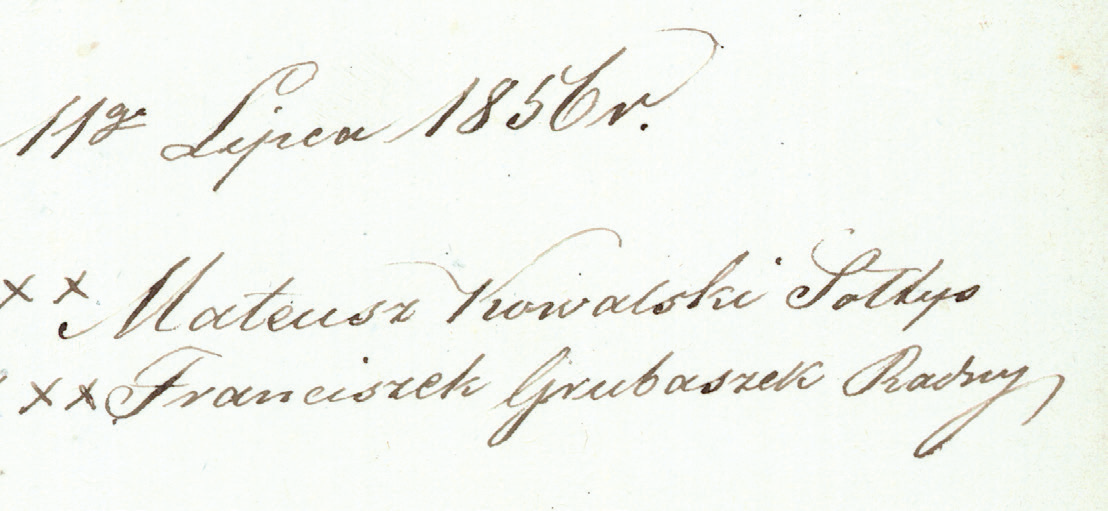 11go Lipca 1856 r.
xx Mateusz Kowalski Sołtys
xx Franciszek Grubaszek Radny